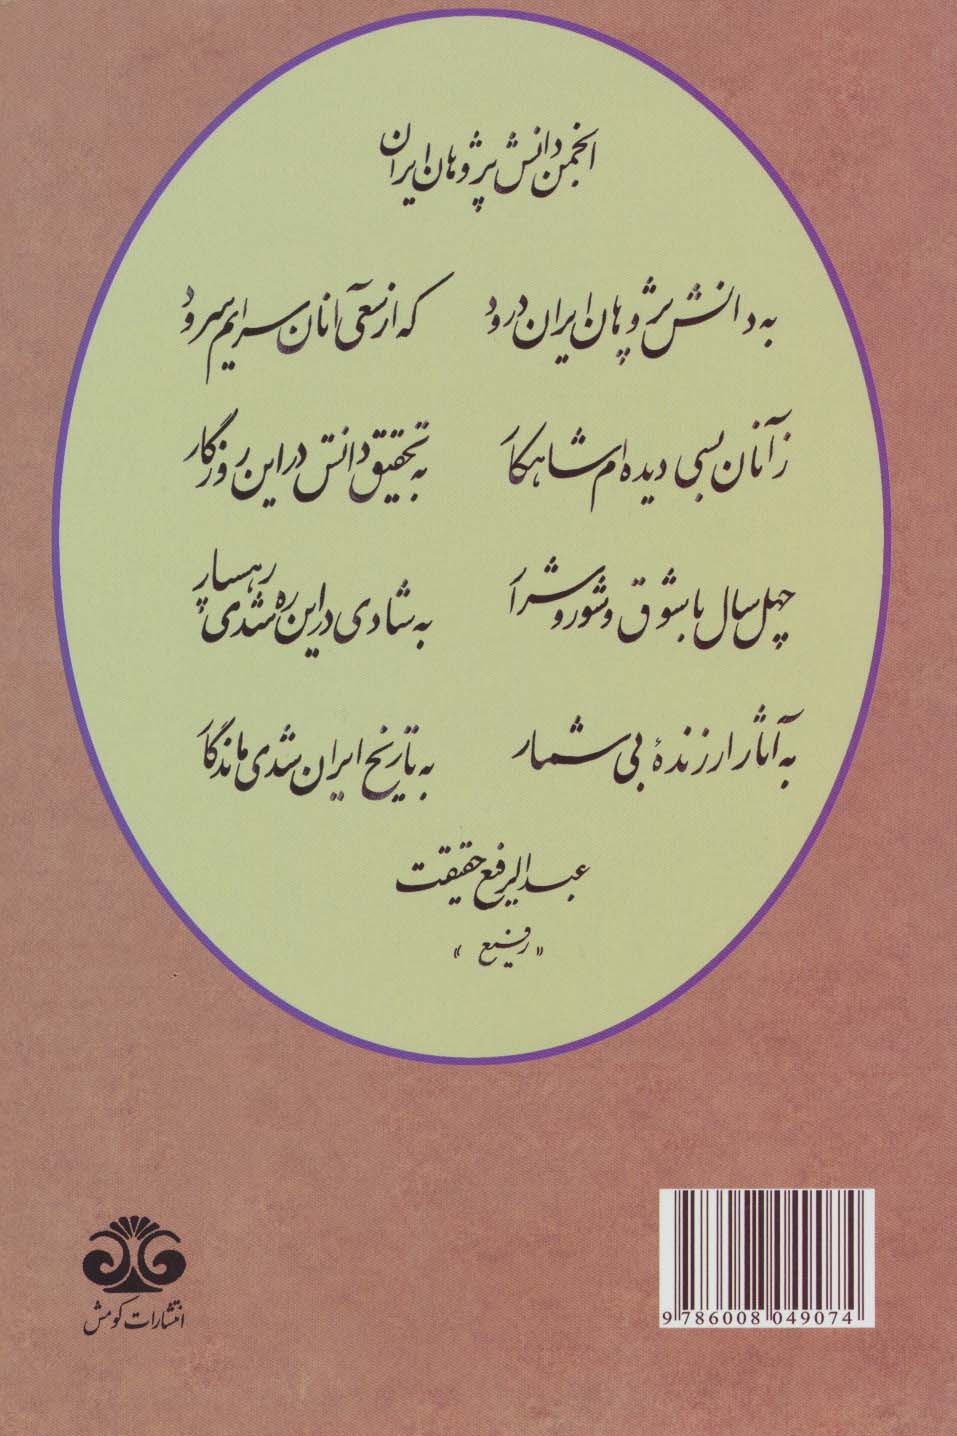 انجمن دانش پژوهان ایران
به دانش پژوهان ایران درود که از سعی آنان سرایم سرود
ز آنان بسی دیده‌ام شاهکار به تحقیق دانش در این روزگار
چهل سال با شوق و شور و شرار به شادی در این ره شدی رهسپار
به آثار ارزندهٔ بی شمار به تاریخ ایران شدی ماندگار
عبدالرفیع حقیقت
«رفیع»
انتشارات کومش
9 786008 049074